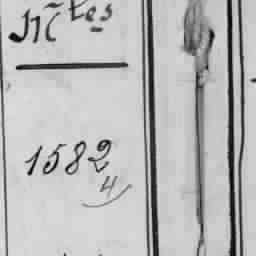 Nc̃les
1582
4